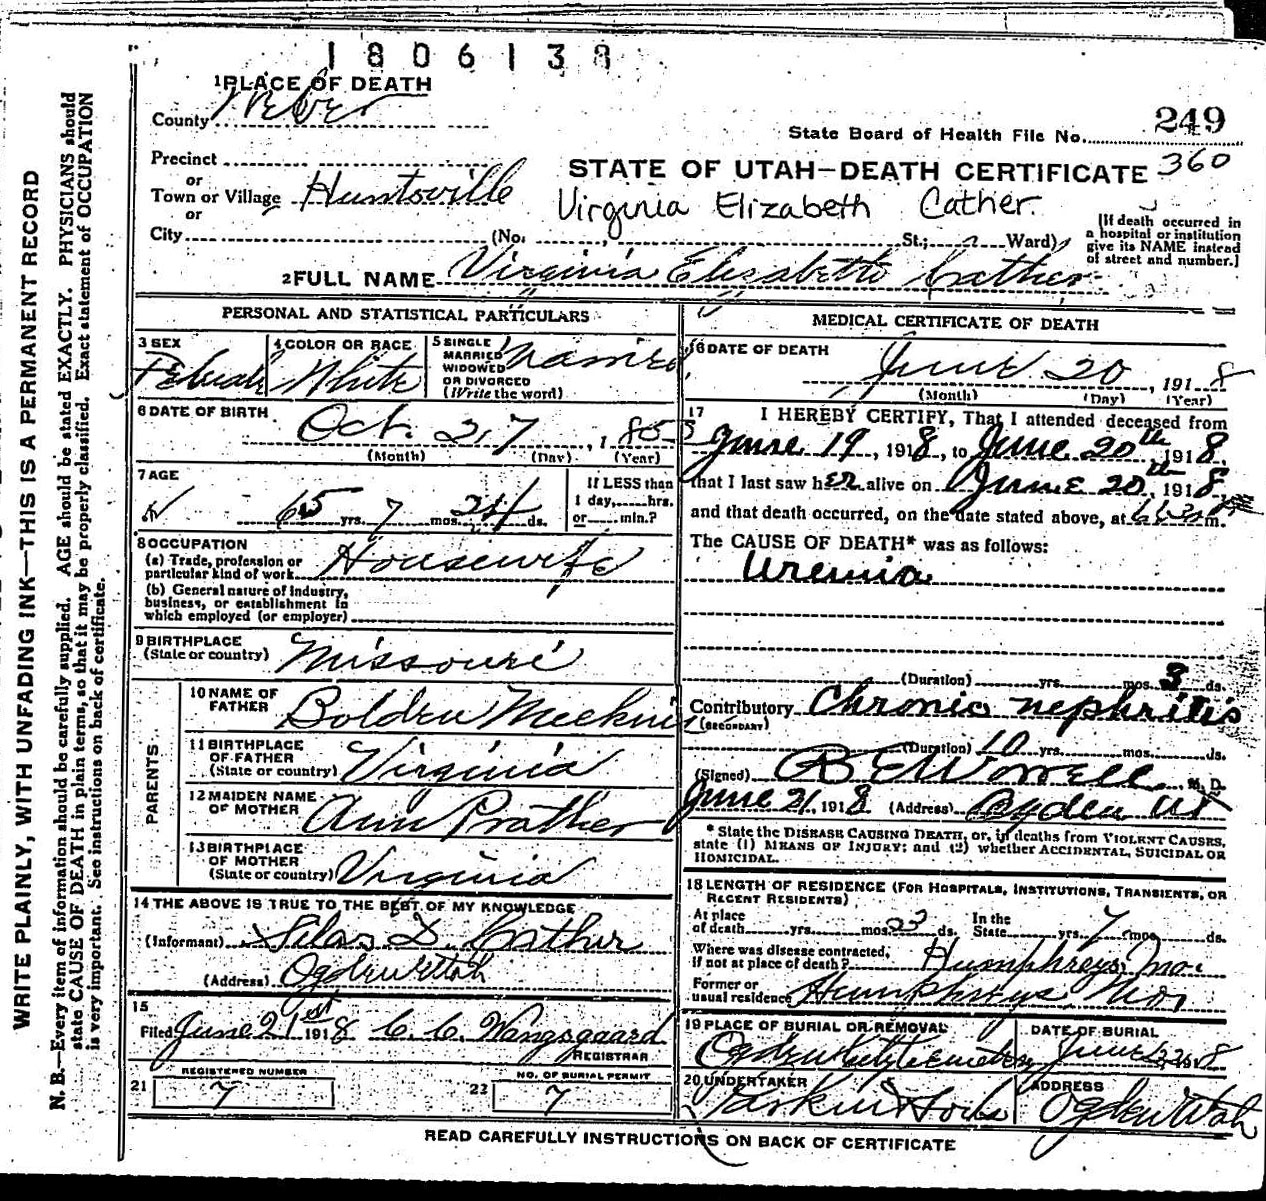 1806138
1 PLACE OF DEATH
County Weber
State Board of Health File No. 249
Precinct
STATE OF UTAH—DEATH CERTIFICATE 360
or
Town or Village Huntsville
Virginia Elizabeth Cather
or
City (No. , St.; Ward)
[If death occurred in
a hospital or institution
give its NAME instead
of street and number.]
2 FULL NAME Virginia Elizabeth Cather
PERSONAL AND STATISTICAL PARTICULARS
3 SEX Female
4 COLOR OR RACE White
5 SINGLE
MARRIED
WIDOWED
OR DIVORCED
(Write the word)
Married
6 DATE OF BIRTH
Oct. 27, 185
(Month) (Day) (Year)
7 AGE
65 yrs. 7 mos. 24 ds.
If LESS than
1 day, hrs.
or min.?
8 OCCUPATION
(a) Trade, profession or
particular kind of work Housewife
(b) General nature of industry,
business, or establishment in
which employed (or employer)
9 BIRTHPLACE
(State or country) Missouri
PARENTS
10 NAME OF
FATHER Bolden
11 BIRTHPLACE
OF FATHER
(State or country) Virginia
12 MAIDEN NAME
OF MOTHER Ann Prather
13 BIRTHPLACE
OF MOTHER
(State or country) Virginia
14 THE ABOVE IS TRUE TO THE BEST OF MY KNOWLEDGE
(Informant) Silas D. Cather
(Address) Ogden Utah
15
Filed June 21st 1918 C. C. Wangsgaard
REGISTRAR
21 REGISTERED NUMBER
7
22 NO. OF BURIAL PERMIT
7
MEDICAL CERTIFICATE OF DEATH
16 DATE OF DEATH
June 20, 1918
(Month) (Day) (Year)
17 I HEREBY CERTIFY, That I attended deceased from
June 19, 1918, to June 20th 1918,
that I last saw her alive on June 20th, 1918,
and that death occurred, on the date stated above, at m.
The CAUSE OF DEATH* was as follows:
Uremia
(Duration) yrs. mos. 3 ds.
Contributory Chronic nephritis
(SECONDARY)
(Duration) 10 yrs. mos. ds.
(Signed) M. D.
June 21, 1918 (Address) Ogden Ut
* State the DISEASE CAUSING DEATH, or, in deaths from VIOLENT CAUSES,
state (1) MEANS OF INJURY; and (2) whether ACCIDENTAL, SUICIDAL OR
HOMICIDAL.
18 LENGTH OF RESIDENCE (FOR HOSPITALS, INSTITUTIONS, TRANSIENTS, OR
RECENT RESIDENTS)
At place
of death yrs. mos. 23 ds.
In the
State yrs. 7 mos. ds.
Where was disease contracted,
if not at place of death? Humphreys, Mo.
Former or
usual residence Humphreys Mo.
19 PLACE OF BURIAL OR REMOVAL
Ogden City Cemetery
DATE OF BURIAL
June 1918
20 UNDERTAKER
Larkin & Sons
ADDRESS
Ogden Utah
READ CAREFULLY INSTRUCTIONS ON BACK OF CERTIFICATE
WRITE PLAINLY, WITH UNFADING INK—THIS IS A PERMANENT RECORD
N. B.—Every item of information should be carefully supplied. AGE should be stated EXACTLY. PHYSICIANS should
state CAUSE OF DEATH in plain terms, so that it may be properly classified. Exact statement of OCCUPATION
is very important. See instructions on back of certificate.